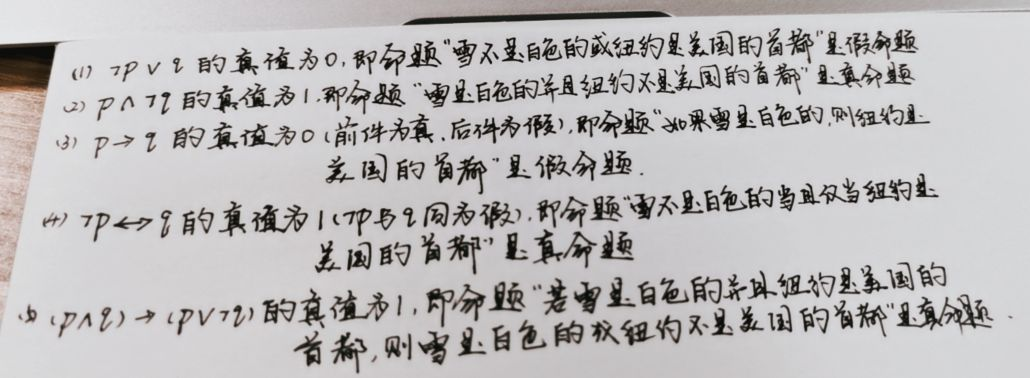 (1) ¬p∨q 的真值为0,即命题"雪不是白色的或纽约是美国的首都"是假命题
(2) p∧¬q 的真值为1,即命题"雪是白色的并且纽约不是美国的首都"是真命题
(3) p→q 的真值为0(前件为真、后件为假),即命题"如果雪是白色的,则纽约是
美国的首都"是假命题.
(4) ¬p↔q 的真值为1(¬p与q同为假),即命题"雪不是白色的当且仅当纽约是
美国的首都"是真命题
(5) (p∧q)→(p∨¬q)的真值为1,即命题"若雪是白色的并且纽约是美国的
首都,则雪是白色的或纽约不是美国的首都"是真命题.